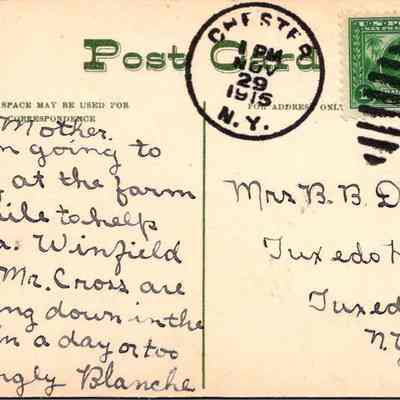 Post Card
SPACE MAY BE USED FOR
CORRESPONDENCE
FOR ADDRESS ONLY
CHESTER
1 PM
NOV
29
1915
N.Y.
U.S. PO
Mother.
m going to
at the farm
ile to help
a. Winfield
Mr. Cross are
ng down in the
in a day or too
ngly Blanche
Mrs B. B. D
Tuxedo
Tuxed
N.Y